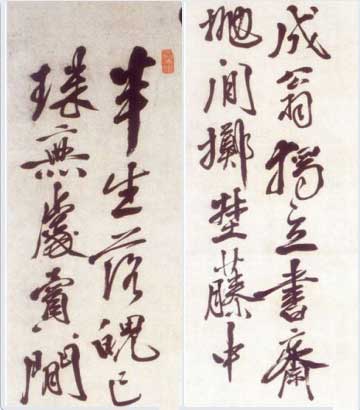 成翁獨立書齋
拋閒擲野藤中
半生落魄已
珠無處賣閒